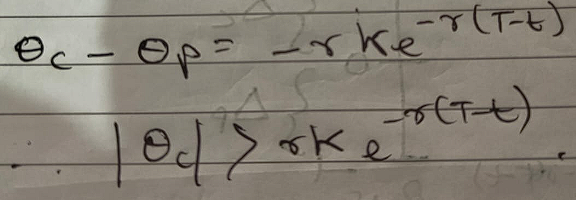 θc - θp = -rke^-r(T-t)
∴ |θc| > rke^-r(T-t).